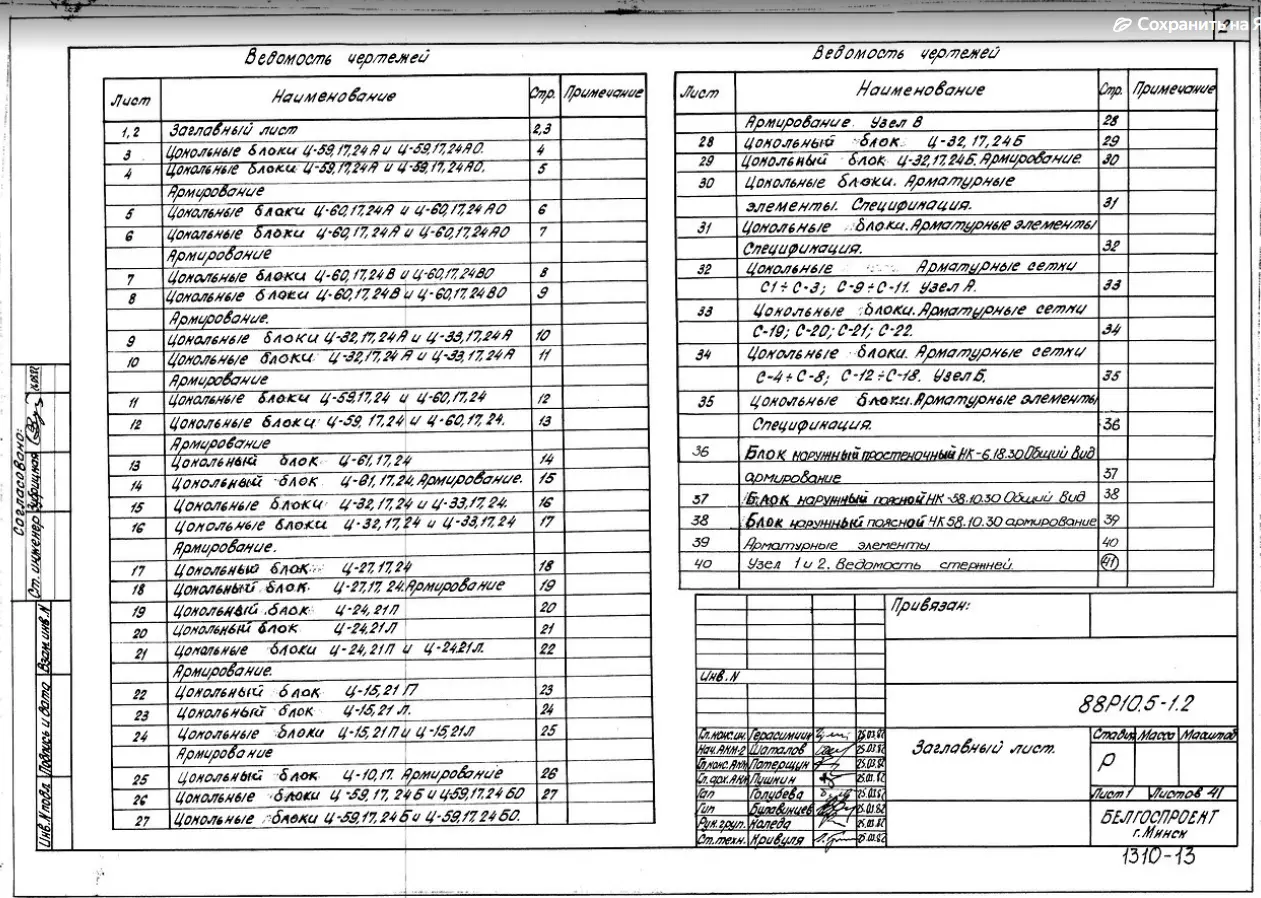 Сохранить на Я
2
Ведомость чертежей
Лист Наименование Стр. Примечание
1,2 Заглавный лист 2,3
3 Цокольные блоки Ц-59,17,24А и Ц-59,17,24АО. 4
4 Цокольные блоки Ц-59,17,24А и Ц-59,17,24АО. 5
Армирование
5 Цокольные блоки Ц-60,17,24А и Ц-60,17,24АО 6
6 Цокольные блоки Ц-60,17,24А и Ц-60,17,24АО 7
Армирование
7 Цокольные блоки Ц-60,17,24В и Ц-60,17,24ВО 8
8 Цокольные блоки Ц-60,17,24В и Ц-60,17,24ВО 9
Армирование.
9 Цокольные блоки Ц-32,17,24А и Ц-33,17,24А 10
10 Цокольные блоки Ц-32,17,24А и Ц-33,17,24А 11
Армирование
11 Цокольные блоки Ц-59,17,24 и Ц-60,17,24 12
12 Цокольные блоки Ц-59,17,24 и Ц-60,17,24. 13
Армирование
13 Цокольный блок Ц-61,17,24 14
14 Цокольный блок Ц-61,17,24. Армирование. 15
15 Цокольные блоки Ц-32,17,24 и Ц-33,17,24. 16
16 Цокольные блоки Ц-32,17,24 и Ц-33,17,24 17
Армирование.
17 Цокольный блок Ц-27,17,24 18
18 Цокольный блок Ц-27,17,24.Армирование 19
19 Цокольный блок Ц-24,21П 20
20 Цокольный блок Ц-24,21Л 21
21 Цокольные блоки Ц-24,21П и Ц-24.21Л. 22
Армирование.
22 Цокольный блок Ц-15,21П 23
23 Цокольный блок Ц-15,21Л. 24
24 Цокольные блоки Ц-15,21П и Ц-15,21Л 25
Армирование
25 Цокольный блок Ц-10,17. Армирование 26
26 Цокольные блоки Ц-59,17,24Б и Ц-59,17,24БО 27
27 Цокольные блоки Ц-59,17,24Б и Ц-59,17,24БО.
Ведомость чертежей
Лист Наименование Стр. Примечание
Армирование. Узел В 28
28 Цокольный блок Ц-32,17,24Б 29
29 Цокольный блок Ц-32,17.24Б. Армирование 30
30 Цокольные блоки. Арматурные
элементы. Спецификация. 31
31 Цокольные блоки.Арматурные элементы
Спецификация. 32
32 Цокольные Арматурные сетки
С1÷С-3; С-9÷С-11. Узел А. 33
33 Цокольные блоки.Арматурные сетки
С-19; С-20; С-21; С-22. 34
34 Цокольные блоки. Арматурные сетки
С-4÷С-8; С-12÷С-18. Узел Б. 35
35 Цокольные блоки.Арматурные элементы
Спецификация. 36
36 Блок наружный простеночный НК-6.18.30 Общий вид
армирование 37
37 Блок наружный поясной НК-58.10.30 Общий вид 38
38 Блок наружный поясной ЧК 58.10.30 армирование 39
39 Арматурные элементы 40
40 Узел 1 и 2. Ведомость стержней. 41
Привязан:
Инв. N
88Р10.5-1.2
Гл.конс.ин. Герасимчик 25.03.82
Нач.АКМ-2 Шаталов 25.03.82
Гл.конс.АКМ Патерщук 25.03.82
Гл.арх.АКМ Пушкин 25.03.82
Гап Голубева 25.03.82
Гип Булавинцев 25.03.82
Рук.груп. Каледа 25.03.82
Ст.техн. Кривуля 25.03.82
Заглавный лист.
Стадия Масса Масштаб
Р
Лист 1 Листов 41
БЕЛГОСПРОЕКТ
г.Минск
1310-13
Согласовано:
Ст. инженер Зубрицкая
Взам.инв.N
Подпись и дата
Инв.N подл.